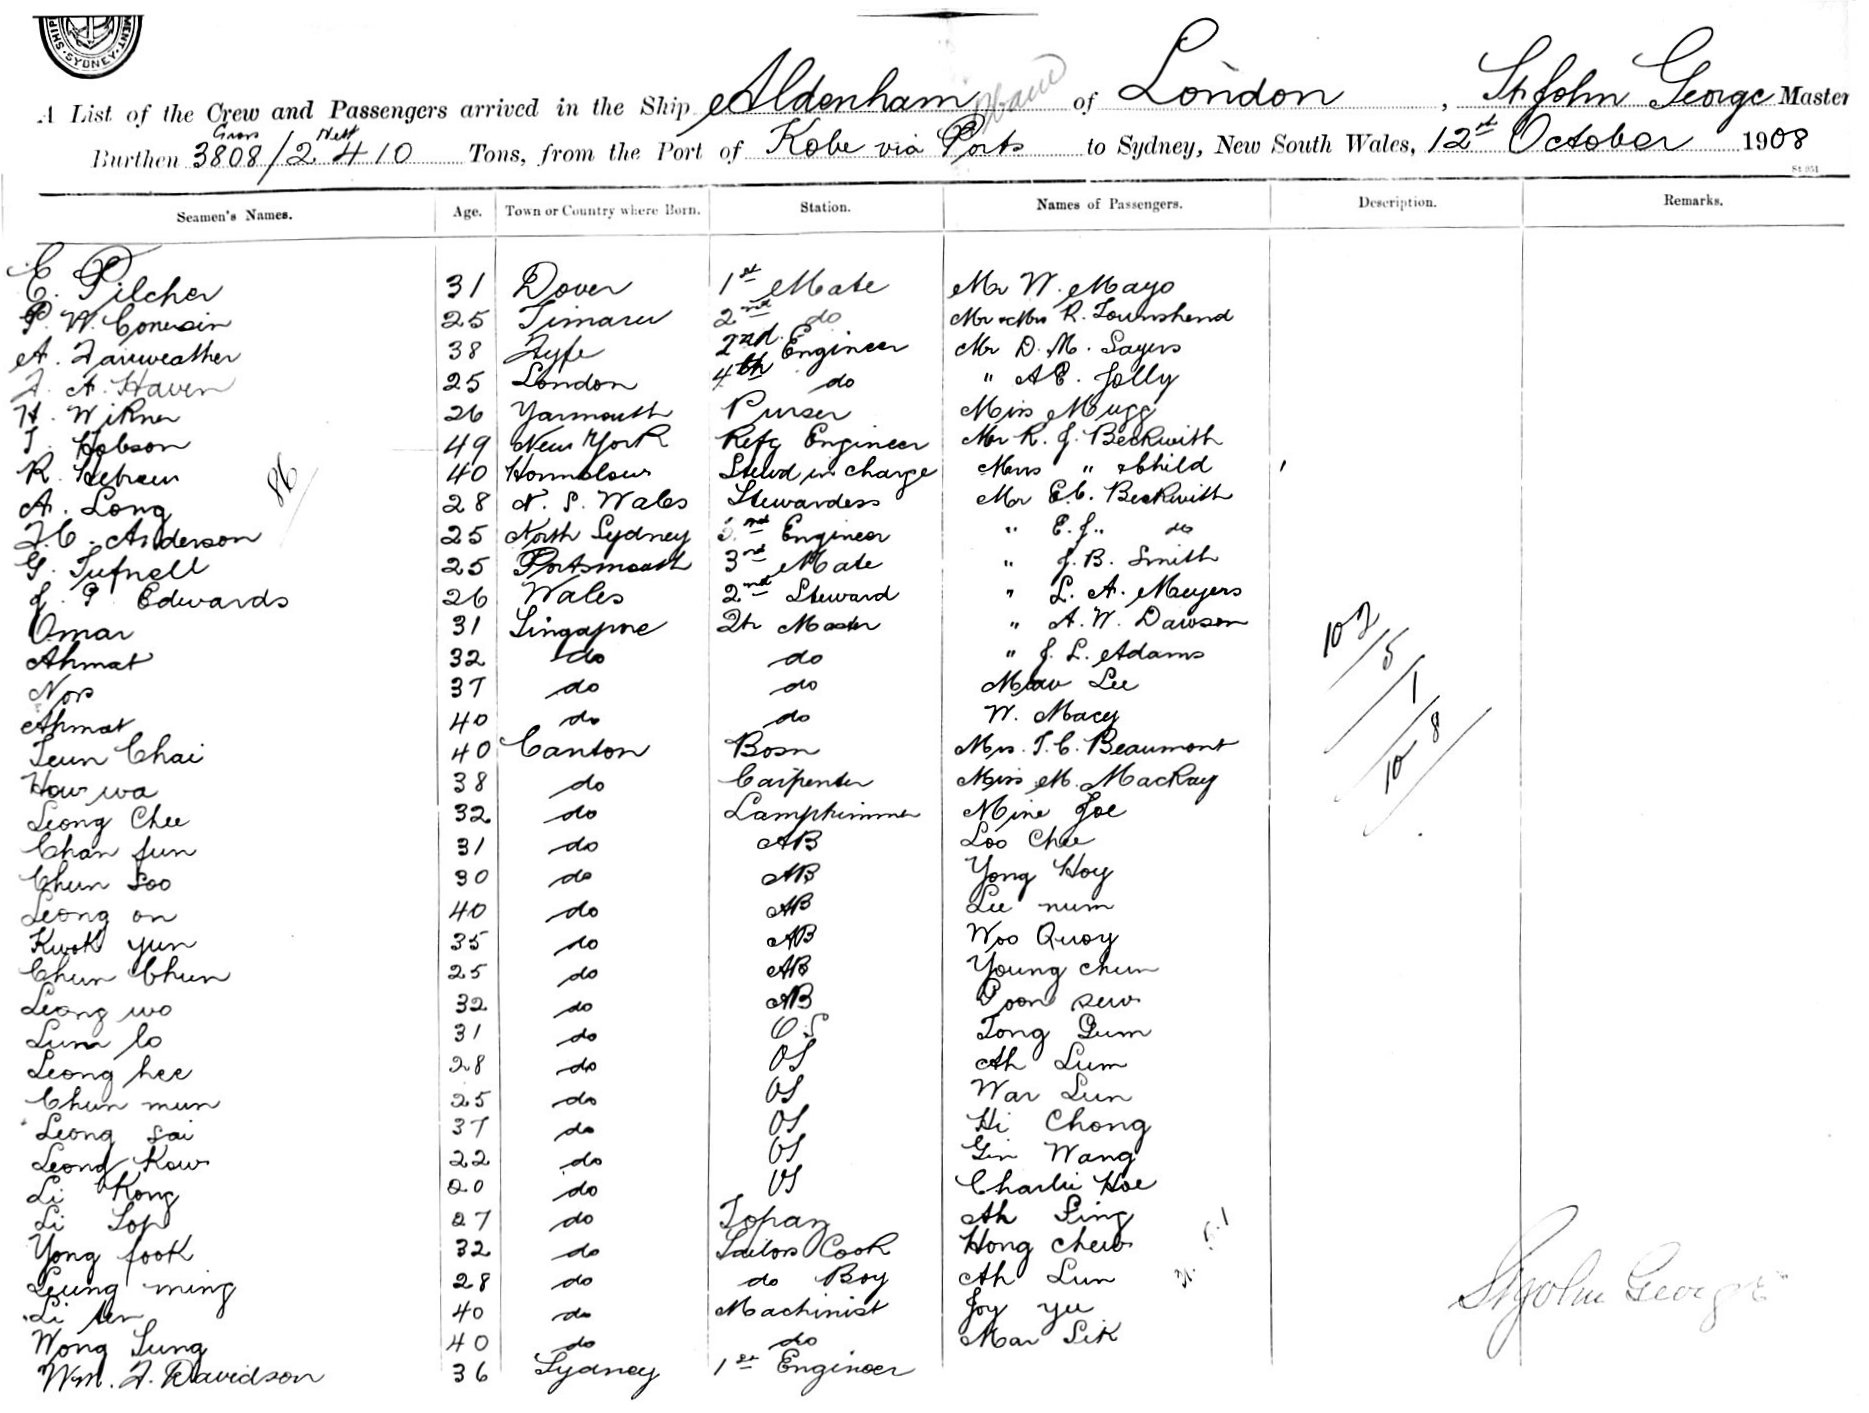 SHIP MENT · SYDNEY ·
A List of the Crew and Passengers arrived in the Ship Aldenham of London, St John George Master
Burthen 3808 Gross / 2410 Nett Tons, from the Port of Kobe via Ports to Sydney, New South Wales, 12th October 1908
Seamen's Names. Age. Town or Country where Born. Station. Names of Passengers. Description. Remarks.
C. Pilcher 31 Dover 1st Mate Mr W. Mayo
P. W. 25 Timaru 2nd do Mr & Mrs R. Townshend
A. Fairweather 38 Fyfe 2nd Engineer Mr D. M. Sayers
F. A. Haven 25 London 4th do " A E. Jolly
H. Wikner 26 Yarmouth Purser Miss Mugg
T. Hobson 49 New York Refg Engineer Mr R. J. Beckwith
R. Hebrew 40 Hounslow Stewd in charge Mrs " & child
A. Long 28 N. S. Wales Stewardess Mr E. C. Beckwith
F. C. Anderson 25 North Sydney Engineer " E. J. " do
G. Tufnell 25 Portsmouth 3rd Mate " J. B. Smith
J. P. Edwards 26 Wales 2nd Steward " L. A. Meyers
Omar 31 Singapore Qtr Master " A. W. Dawson
Ahmat 32 do do " J. L. Adams
Nor 37 do do Lee
Ahmat 40 do do W. Macey
Teun Chai 40 Canton Bosn Mrs. T. C. Beaumont
How wa 38 do Carpenter Miss M. MacKay
Leong Chee 32 do Lamptrimmer Mine Joe
Chan fun 31 do AB Loo Chee
Chun Soo 30 do AB Yong Hoy
Leong on 40 do AB Lee num
Kwok yun 35 do AB Woo Quoy
Chun Chun 25 do AB Young chun
Leong wo 32 do AB Poon sew
Lum lo 31 do OS Tong Gum
Leong hee 28 do OS Ah Lum
Chun mun 25 do OS War Lun
Leong Sai 37 do OS Hi Chong
Leong Kow 22 do OS Gin Wang
Li Kong 20 do OS Charlie Hoe
Li Sop 27 do Topaz Ah Ping
Yong fook 32 do Sailors Cook Hong chew
Leung ming 28 do do Boy Ah Lun
Li 40 do Machinist Joy yee
Wong Sung 40 do do Mar Sik
Wm. F. Davidson 36 Sydney 1st Engineer
86
102/5/1
108
St John George